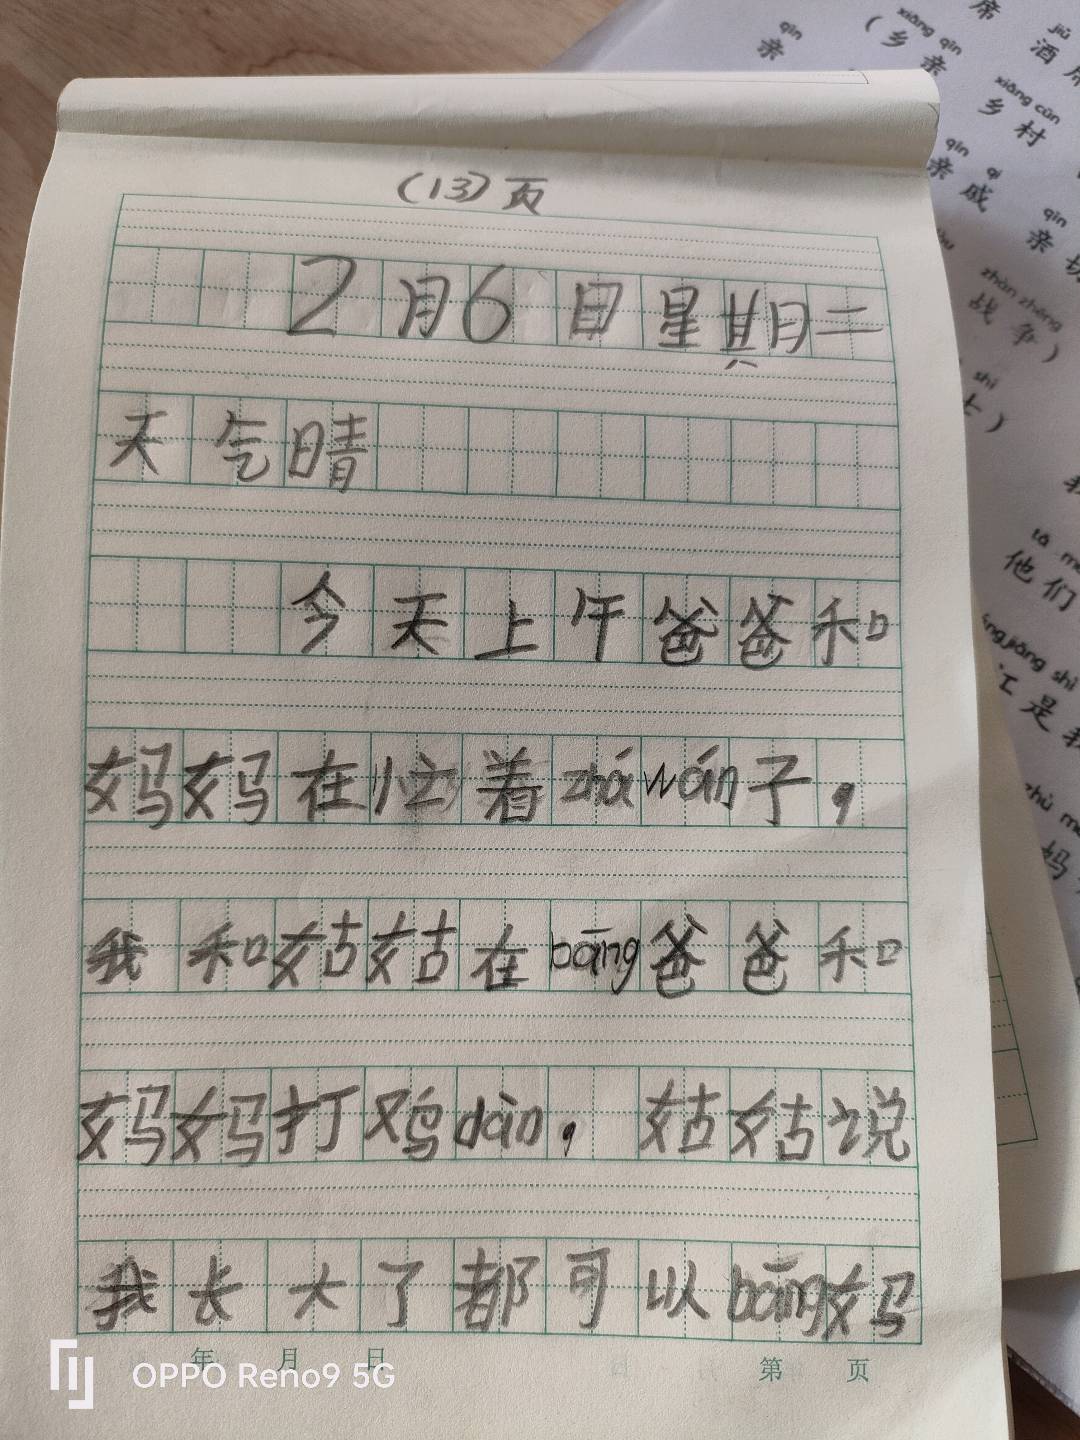 (13)页
2月6日星期二
天气晴
今天上午爸爸和
妈妈在忙着zháwán子，
我和姑姑在bāng爸爸和
妈妈打鸡dàn，姑姑说
我长大了都可以bāng妈
年 月 日 第 页
OPPO Reno9 5G
qīn
亲
席
jiǔ
酒席
xiāng qīn
（乡亲
xiāng cūn
乡村
qīn qi
亲戚
qīn
亲切
zhàn zhēng
战争）
shì
士）
tā me
他们
jiāng shì
江是我
zhǔ
妈